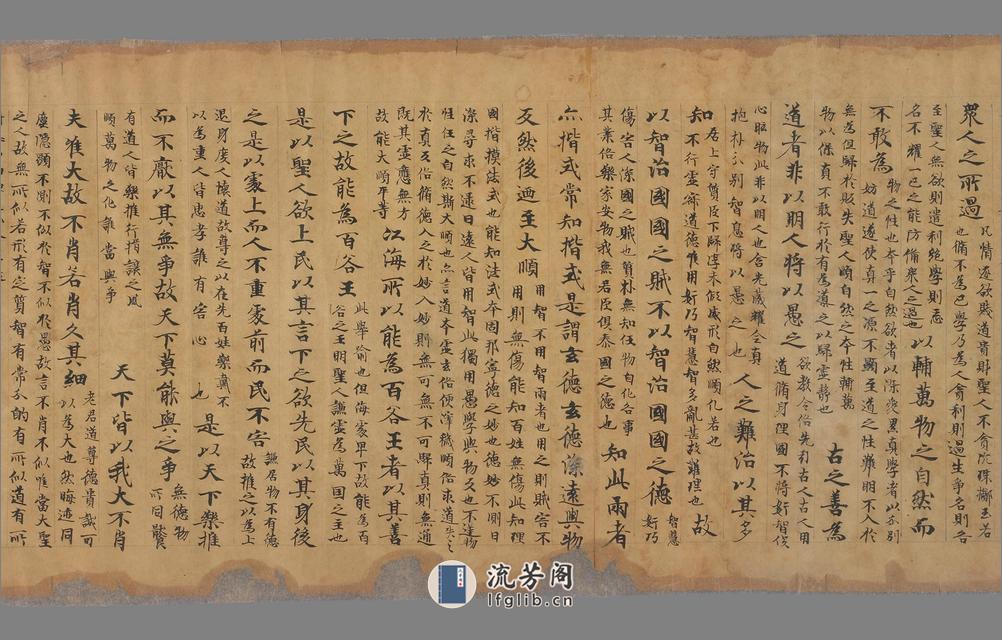 眾人之所過
凡情速欲賤道貴財聖人不貪玩珠櫛玉若
也脩不為已學乃為人貪利則過生爭名則名
至聖人無欲則遣利絕學則忘
名不耀一已之能防備眾之過也
以輔萬物之自然而
不敢為
物之性也本乎自然欲者以深愛累真學者以分別
妨道遂使真一之源不顯至道之性難明不入於
無為但歸於敗失聖人順自然之本性輔萬
物以保真不敢行於有為導之以歸虛静也
古之善為
道者非以明人將以愚之
欲教今俗先引古人古人用
道脩身理國不將奸智
心昭物此非以明人也含光藏耀全真
抱朴不別智惠將以愚之也
人之難治以其多
知
居上守質臣下歸淳不假威形自然順化若也
不行靈府道德唯用奸巧智慧智多亂甚故難理也
故
以智治國國之賊不以智治國國之德
智慧
奸巧
傷害人除國之賊也質朴無知任物自化各事
其業俗樂家安物我無君臣俱泰國之德也
知此兩者
亦揩式常知揩式是謂玄德玄德深遠與物
反然後迺至大順
用智不用智兩者也用之則賊害不
用則無傷能知百姓無傷此知理
國揩摸法式也能知法式本固邦寧德之妙也德妙不測曰
深尋求不逮曰遠人皆用智此獨用愚學與物反也不逮物
性任之自然斯大順也亦言道本玄玄俗便渾穢順俗求道失之
於真反俗脩德入之於妙入妙則無可無不可歸真則無通
既其靈應無方
故能大順平等
江海所以能為百谷王者以其善
下之故能為百谷王
此舉喻也但海處卑下故能為百
谷之王明聖人謙虛為萬國之主也
是以聖人欲上民以其言下之欲先民以其身後
之是以處上而人不重處前而民不害
謙居物不有德
故推之以為上
退身度人懷道故尊之以在先百姓樂戴不
以為重人皆忠孝誰有害心也
是以天下樂推
而不厭以其無爭故天下莫能與之爭
無德物
所曰
有道人皆樂推行揖讓之風
順萬物之化誰當與爭
天下皆以我大不肖
夫唯大故不肖若肖久其細
老君道尊德貴誠可
以為大也然晦迹同
塵隱顯不測不似於智不似於愚故言不肖不似唯當大聖
之人故無所似若形有定質智有常分的有所似道有所
流芳阁
lfglib.cn